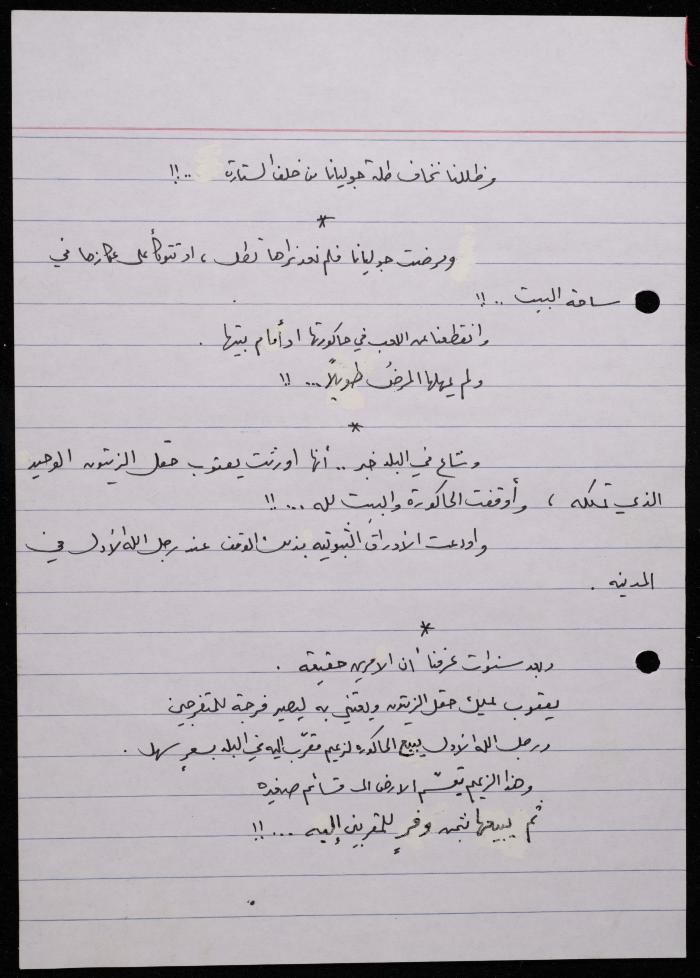 وظللنا نخاف طلة جوليانا من خلف الستارة ..!!
*
ومرضت جوليانا فلم نعد نراها تطل ، او تتوكأ على عكازها في
ساحة البيت ..!!
وانقطعنا عن اللعب في حاكورتها او أمام بيتها .
ولم يمهلها المرضُ طويلاً ...!!
*
وشاع في البلد خبر .. أنها اورثت يعقوب حقل الزيتون الوحيد
الذي تملكه ، وأوقفت الحاكورة والبيت لله ...!!
واودعت الأوراق الثبوتيه بذلك الوقف عند رجل الله الأول في
المدينه .
*
وبعد سنوات عرفنا أن الامرين حقيقه .
يعقوب يملك حقل الزيتون ويعتني به ليصير فرجة للمتفرجين
ورجل الله الأول يبيع الحاكوره لزعيم مقرّب إليه في البلد بسعرٍ سهل .
وهذا الزعيم يقسّم الارض الى قسائم صغيره
ثم يبيعها بثمن وفرٍ للمقربين إليه ...!!